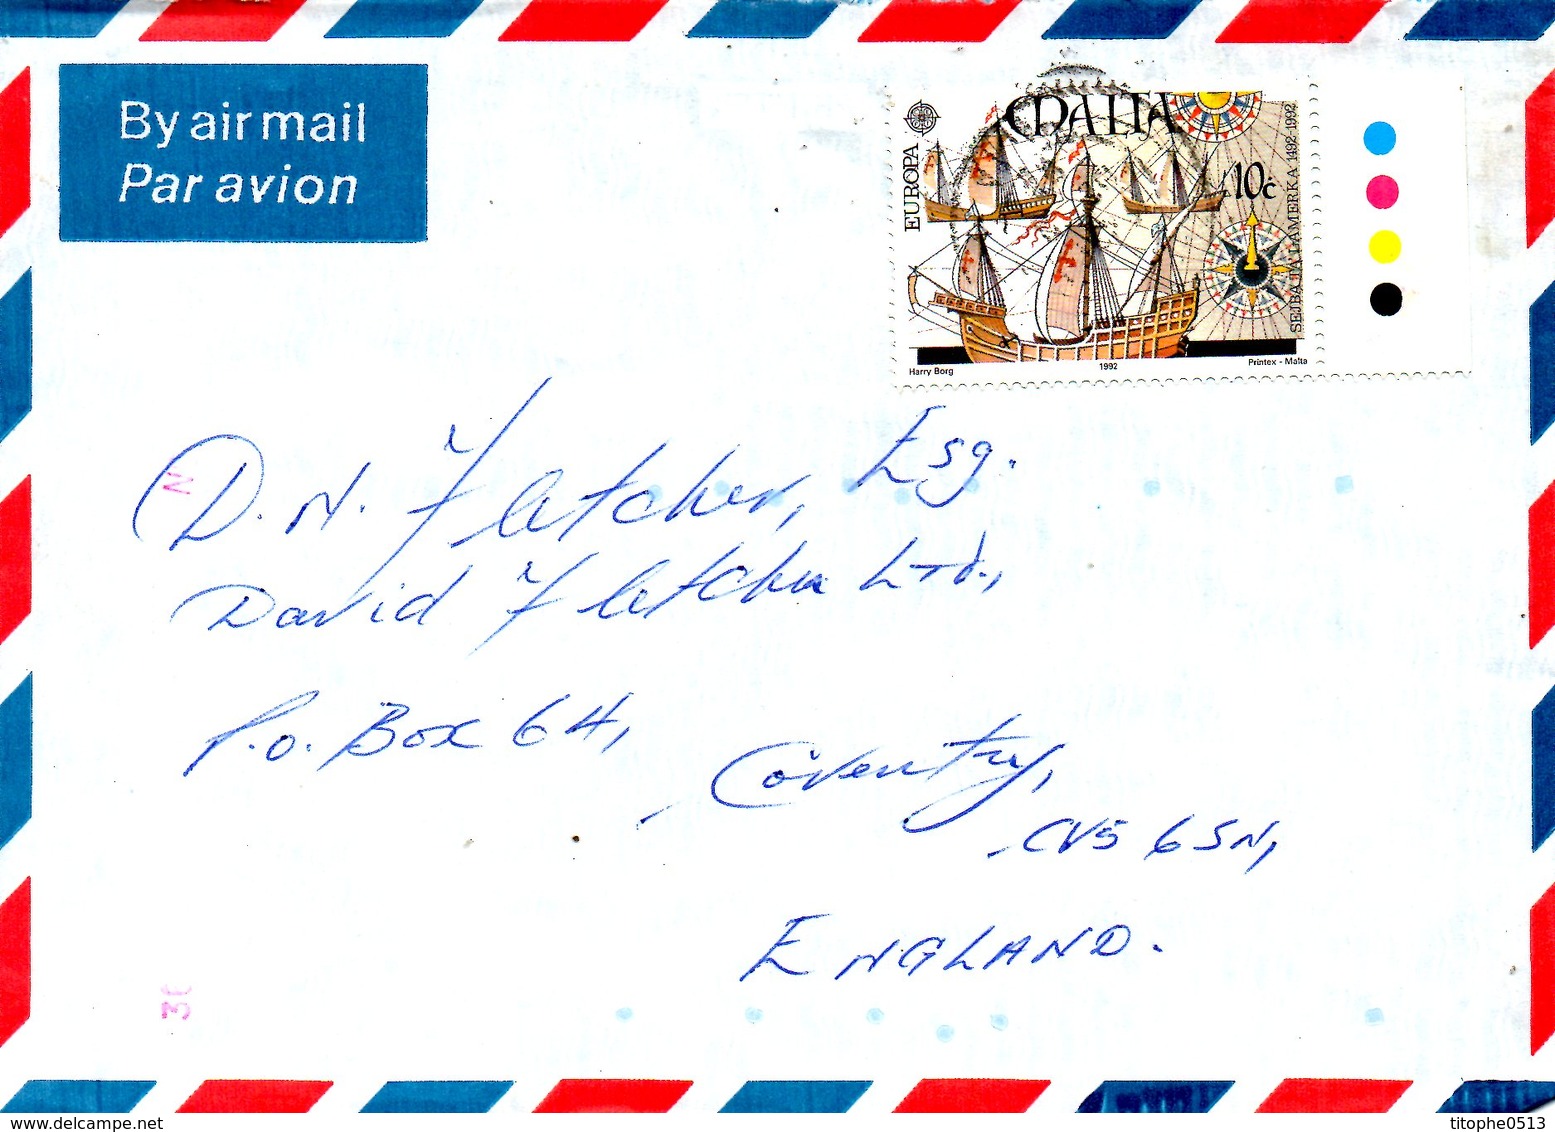 By air mail
Par avion
MALTA
EUROPA
10c
SEJBA TA L-AMERKA 1492-1992
Harry Borg
1992
Printex - Malta
D. N. Fletcher, Esq.
David Fletcher Ltd.,
P.O. Box 64,
Coventry,
CV5 6SN,
ENGLAND.
N
delcampe.net
titophe0513